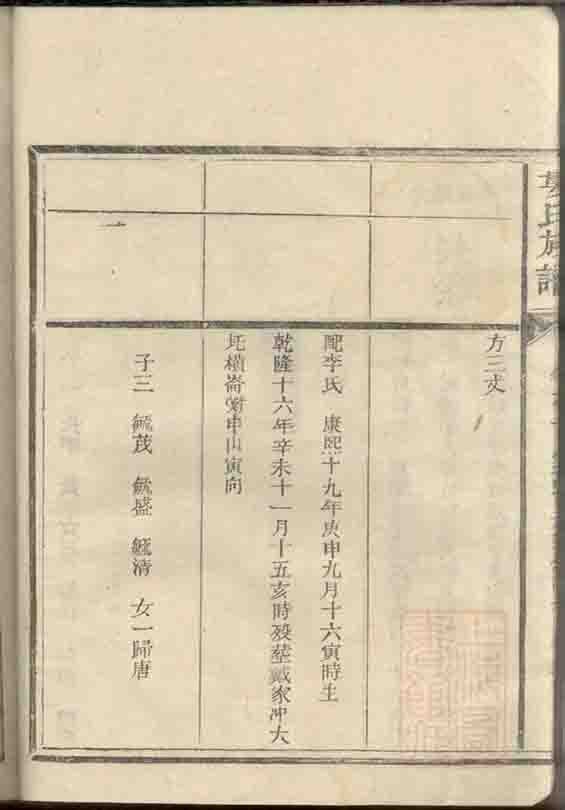 氏族譜
方三丈
配李氏 康熙十九年庚申九月十六寅時生
乾隆十六年辛未十一月十五亥時歿塟戴家冲大
坵横崙 申山寅向
子三 毓茂 毓盛 毓清 女一歸唐